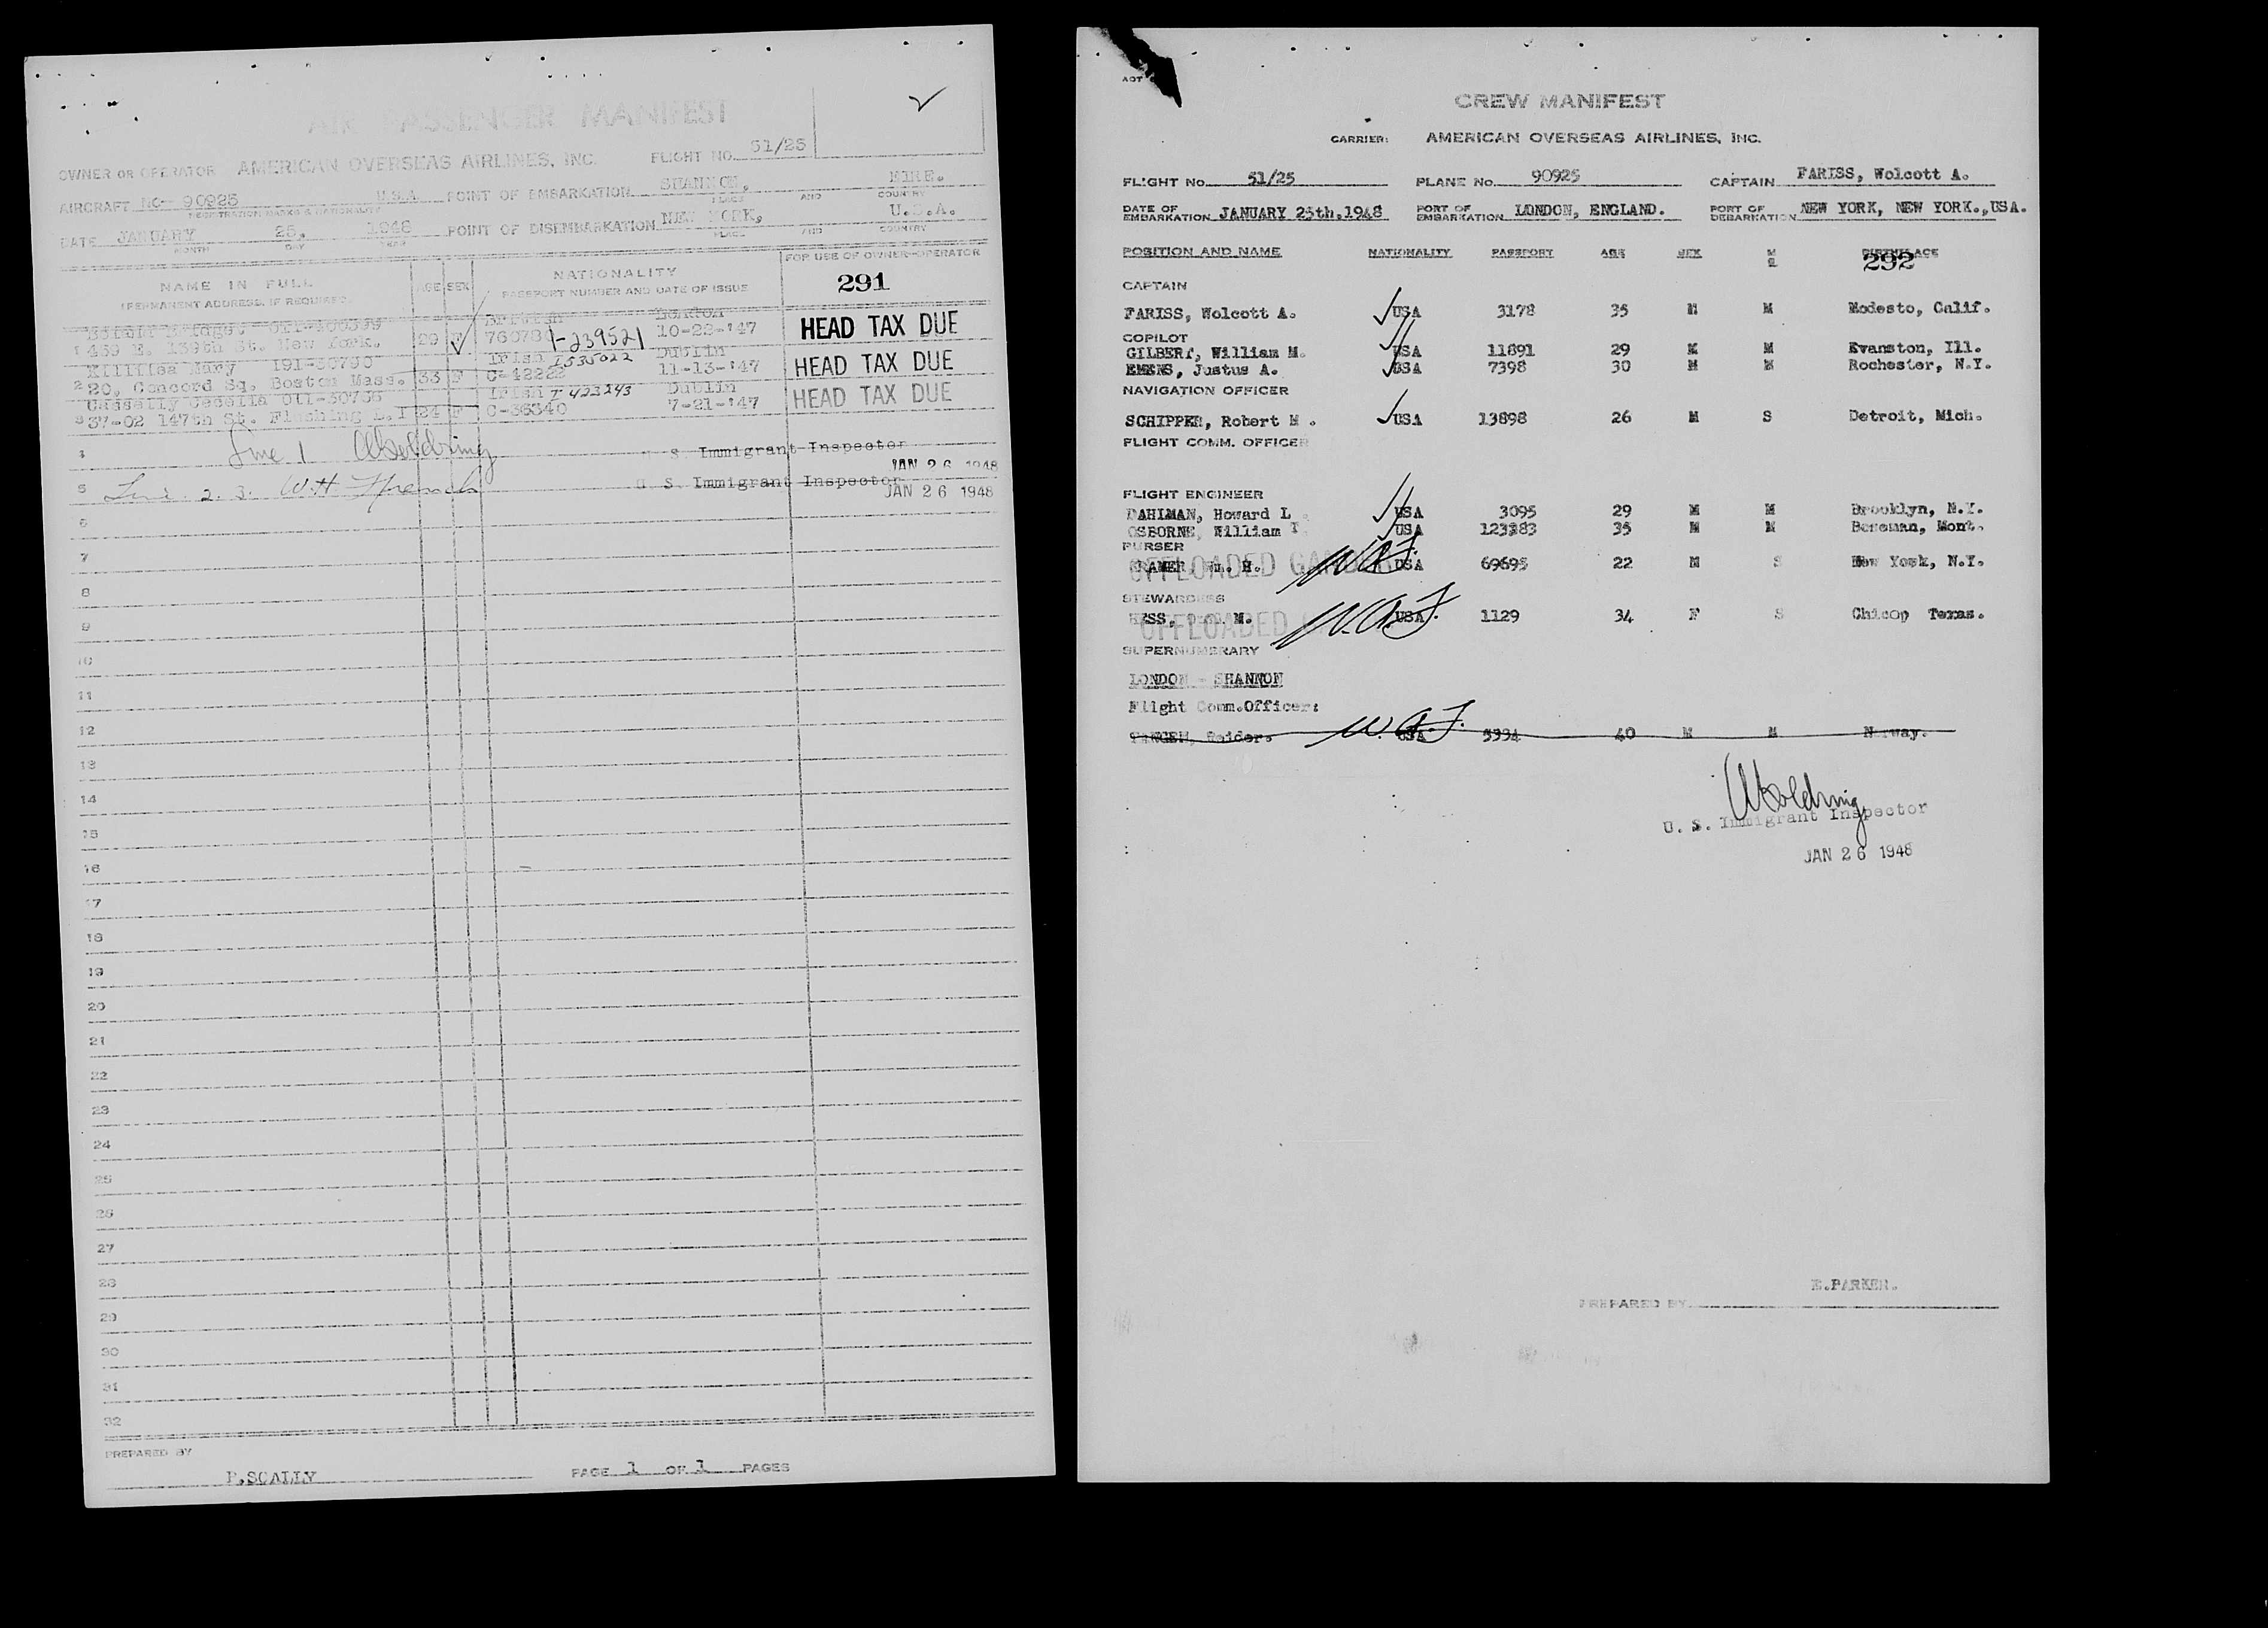 AIR PASSENGER MANIFEST
OWNER OR OPERATOR AMERICAN OVERSEAS AIRLINES, INC. FLIGHT NO. 51/25
AIRCRAFT NC- 90925 U.S.A POINT OF EMBARKATION SHANNON, EIRE.
REGISTRATION MARKS & NATIONALITY PLACE AND COUNTRY
DATE JANUARY 25. 1948 POINT OF DISEMBARKATION NEW YORK, U.S.A.
MONTH DAY YEAR PLACE AND COUNTRY
NAME IN FULL AGE SEX NATIONALITY FOR USE OF OWNER-OPERATOR
(PERMANENT ADDRESS, IF REQUIRED) PASSPORT NUMBER AND DATE OF ISSUE 291
Bridget 011-400399 British London
1 439 E. 139th St. New York. 29 F 760784 I-239521 10-28-'47 HEAD TAX DUE
Mary 191-30790 Irish I535022 Dublin
2 20, Concord Sq. Boston Mass. 33 F C-42222 11-13-'47 HEAD TAX DUE
Casselly Cecelia 011-30736 Irish I 423243 Dublin
3 37-02 147th St. Flushing L.I 24 F C-36340 7-21-'47 HEAD TAX DUE
4 Line 1 U. S. Immigrant Inspector
JAN 26 1948
5 Line 2. 3. W.H. French U. S. Immigrant Inspector
JAN 26 1948
6
7
8
9
10
11
12
13
14
15
16
17
18
19
20
21
22
23
24
25
26
27
28
29
30
31
32
PREPARED BY
P.SCALLY PAGE 1 OF 1 PAGES
AOT
CREW MANIFEST
CARRIER: AMERICAN OVERSEAS AIRLINES, INC.
FLIGHT No. 51/25 PLANE No. 90925 CAPTAIN FARISS, Wolcott A.
DATE OF EMBARKATION JANUARY 25th,1948 PORT OF EMBARKATION LONDON, ENGLAND. PORT OF DEBARKATION NEW YORK, NEW YORK.,USA.
POSITION AND NAME NATIONALITY PASSPORT AGE SEX M S BIRTHPLACE
292
CAPTAIN
FARISS, Wolcott A. USA 3178 35 M M Modesto, Calif.
COPILOT
GILBERT, William M. USA 11891 29 M M Evanston, Ill.
EMENS, Justus A. USA 7398 30 M M Rochester, N.Y.
NAVIGATION OFFICER
SCHIPPER, Robert M . USA 13898 26 M S Detroit, Mich.
FLIGHT COMM. OFFICER
FLIGHT ENGINEER
DAHLMAN, Howard L . USA 3095 29 M M Brooklyn, N.Y.
OSBORNE, William T. USA 35 M M Bozeman, Mont.
PURSER
KRAMER, Wm. H. OFFLOADED W.A.F. USA 69695 22 M S New York, N.Y.
STEWARDESS
HESS, M. OFFLOADED W.A.F. USA 1129 34 F S Chicop Texas.
SUPERNUMERARY
LONDON - SHANNON
Flight Comm.Officer:
Reider. W.A.F. USA 5994 40 M M Norway.
U. S. Immigrant Inspector
JAN 26 1948
E.PARKER.
PREPARED BY